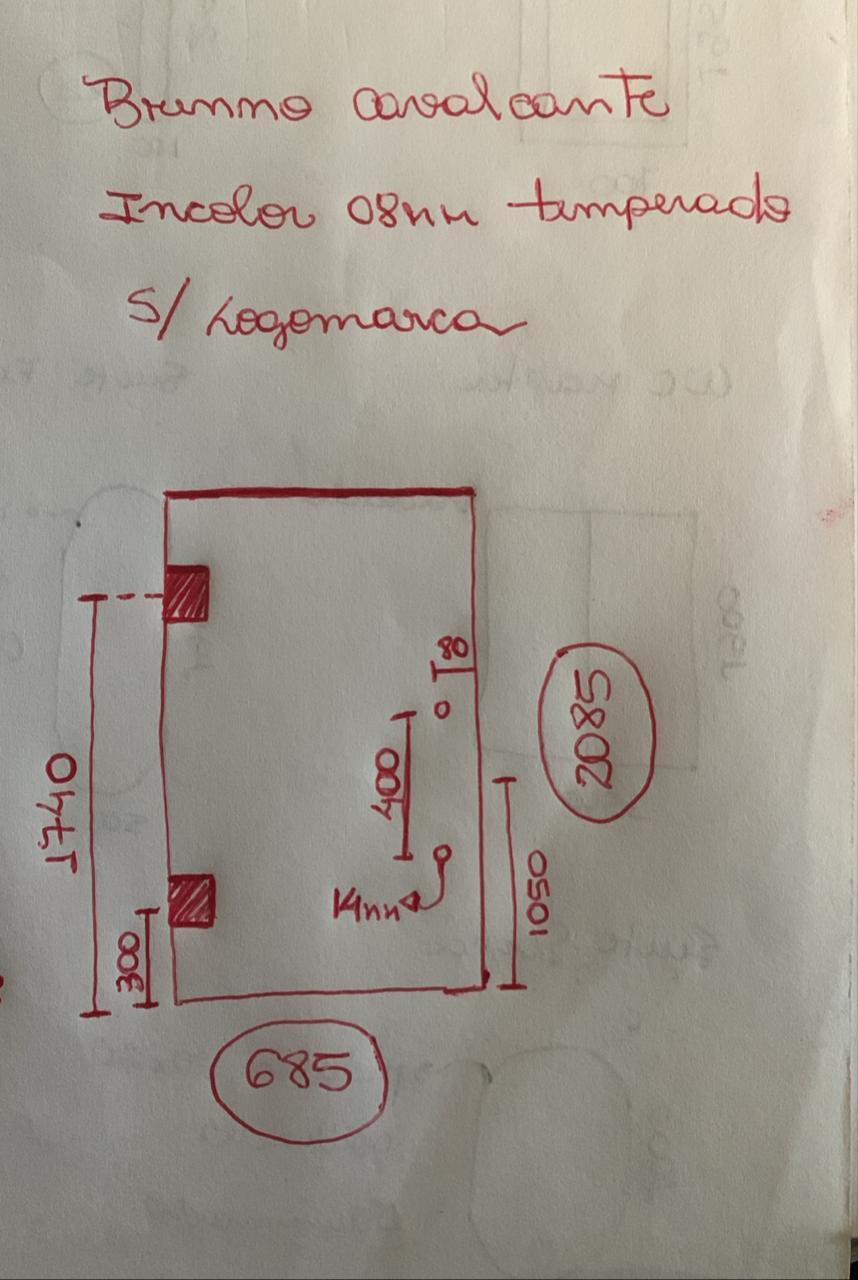 Brunno Cavalcante
Incolor 08mm temperado
S/ Logomarca
80
2085
400
1740
1050
14mm
300
685